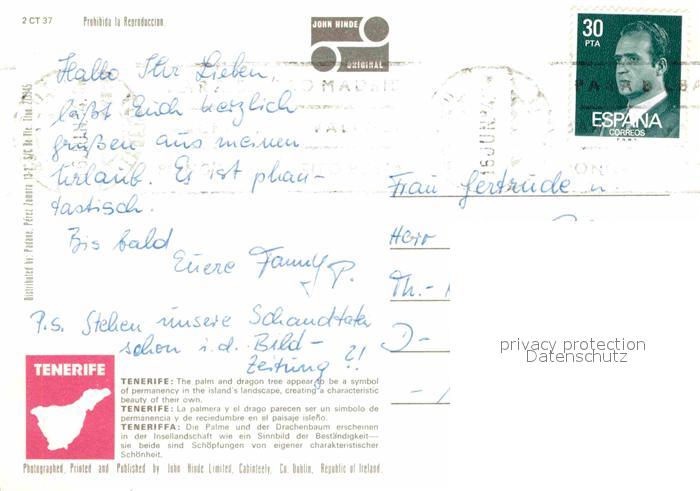 2 CT 37 Prohibida la Reproduccion.
JOHN HINDE
ORIGINAL
30
PTA
ESPAÑA
CORREOS
Hallo Ihr Lieben,
laßt Euch herzlich
grüßen aus meinem
Urlaub. Es ist phan-
tastisch.
Bis bald
Euere Fanny P.
P.S. Stehen unsere Schandtaten
schon i.d. Bild-
Zeitung ?!
Frau Gertrude u.
Herr
Th.-
D-
privacy protection
Datenschutz
TENERIFE
TENERIFE: The palm and dragon tree appear to be a symbol
of permanency in the island's landscape, creating a characteristic
beauty of their own.
TENERIFE: La palmera y el drago parecen ser un simbolo de
permanencia y de reciedumbre en el paisaje isleño.
TENERIFFA: Die Palme und der Drachenbaum erscheinen
in der Insellandschaft wie ein Sinnbild der Beständigkeit—
sie beide sind Schöpfungen von eigener charakteristischer
Schönheit.
Photographed, Printed and Published by John Hinde Limited, Cabinteely, Co. Dublin, Republic of Ireland.